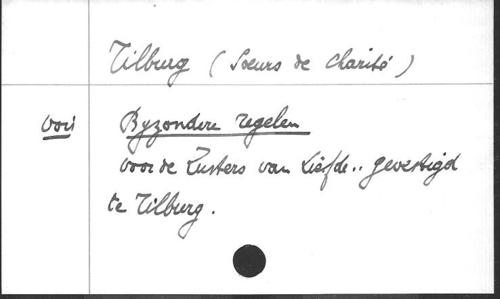 Tilburg (Soeurs de Charité)
voir Byzondere regelen
voor de Zusters van Liefde.. gevestigd
te Tilburg.